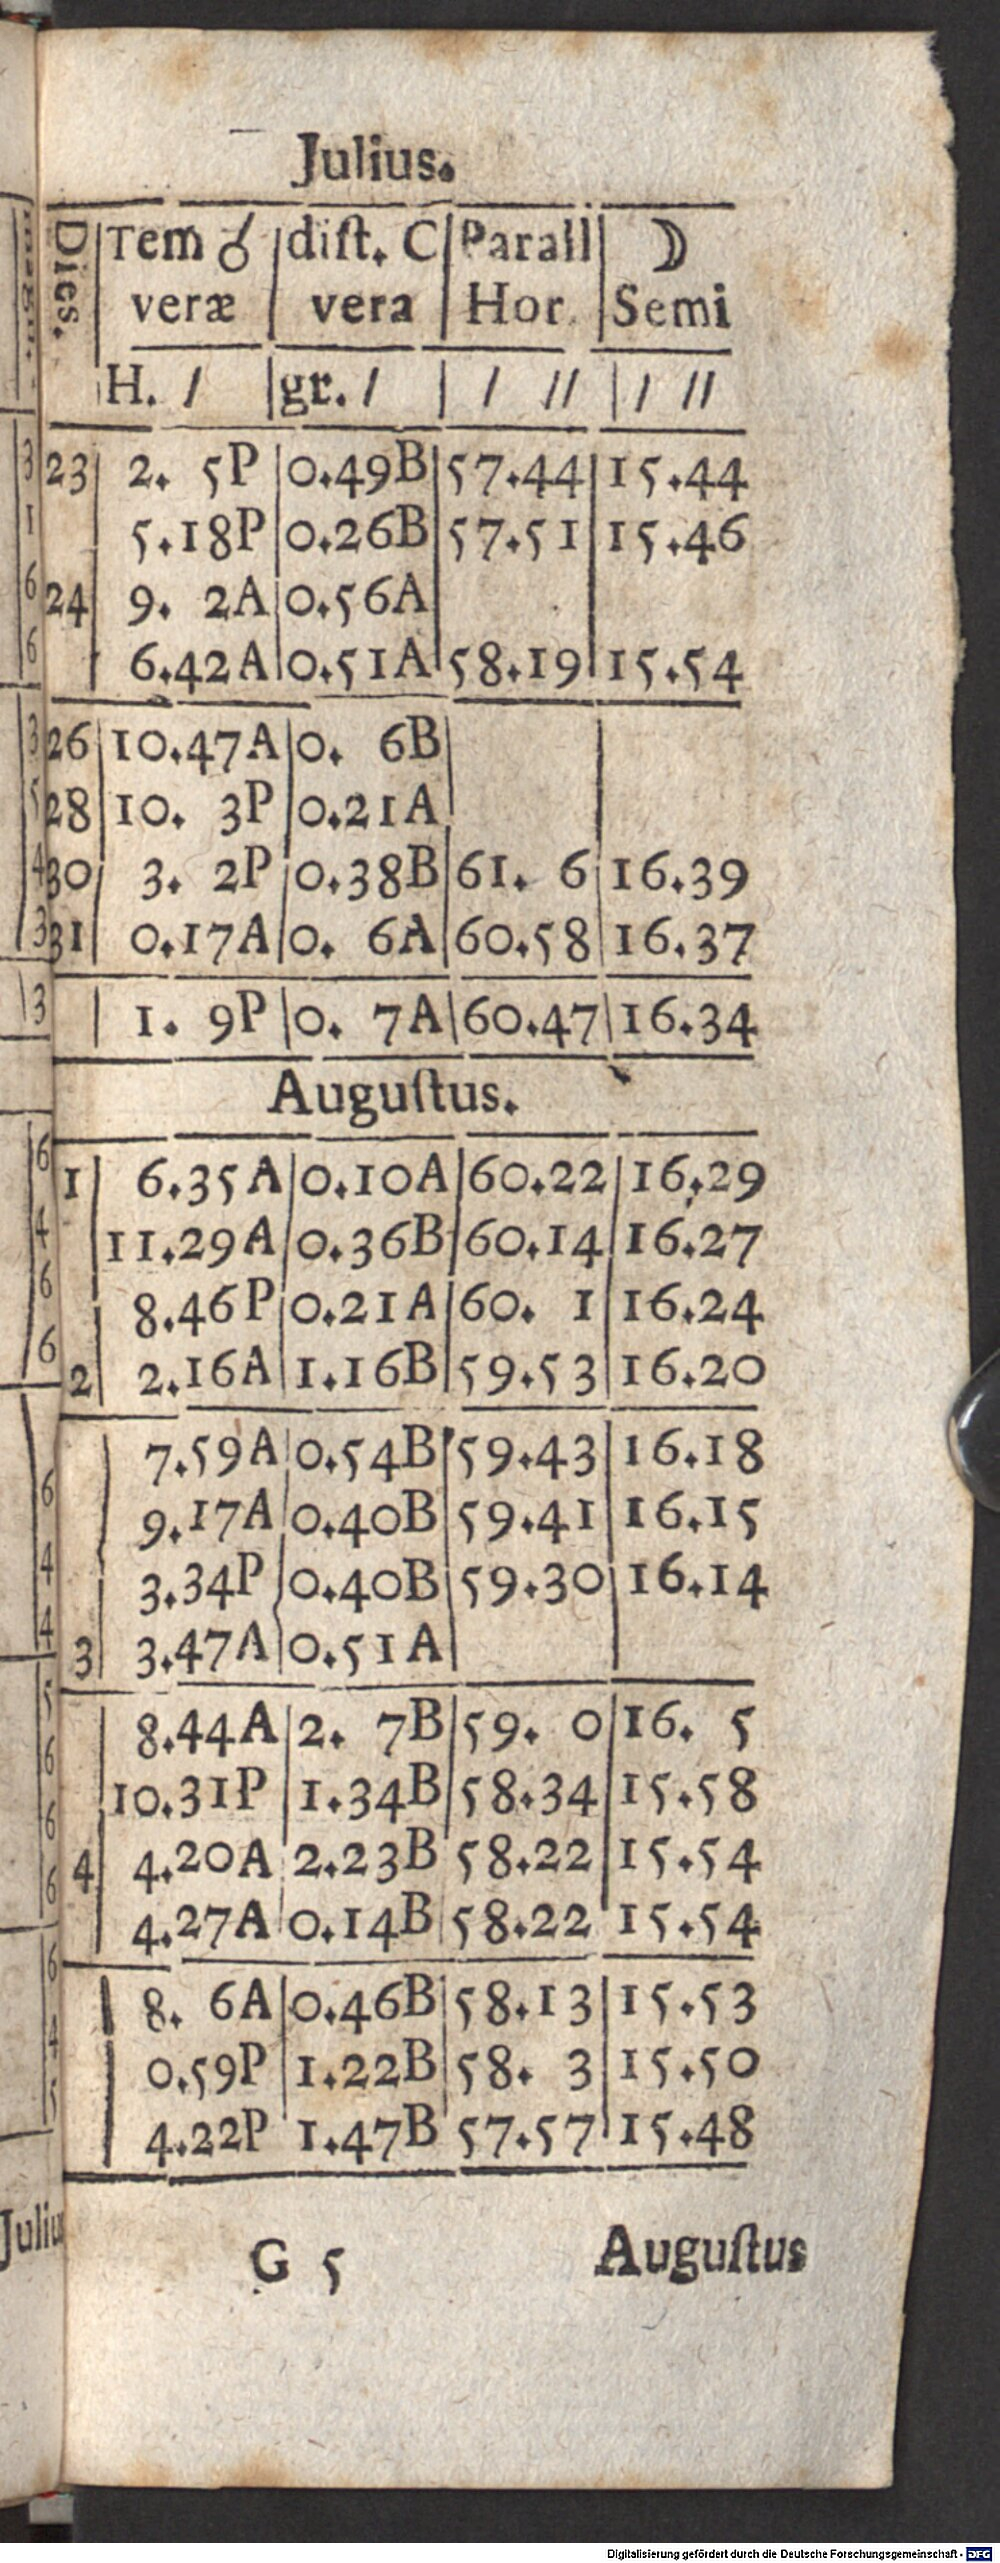 Julius.
Dies. Tem ☌ dist. C Parall ☽
veræ vera Hor. Semi
H. / gr. / / // / //
23 2. 5P 0.49B 57.44 15.44
5.18P 0.26B 57.51 15.46
24 9. 2A 0.56A
6.42A 0.51A 58.19 15.54
26 10.47A 0. 6B
28 10. 3P 0.21A
30 3. 2P 0.38B 61. 6 16.39
31 0.17A 0. 6A 60.58 16.37
1. 9P 0. 7A 60.47 16.34
Auguſtus.
1 6.35A 0.10A 60.22 16.29
11.29A 0.36B 60.14 16.27
8.46P 0.21A 60. 1 16.24
2 2.16A 1.16B 59.53 16.20
7.59A 0.54B 59.43 16.18
9.17A 0.40B 59.41 16.15
3.34P 0.40B 59.30 16.14
3 3.47A 0.51A
8.44A 2. 7B 59. 0 16. 5
10.31P 1.34B 58.34 15.58
4 4.20A 2.23B 58.22 15.54
4.27A 0.14B 58.22 15.54
8. 6A 0.46B 58.13 15.53
0.59P 1.22B 58. 3 15.50
4.22P 1.47B 57.57 15.48
G 5 Auguſtus
Digitalisierung gefördert durch die Deutsche Forschungsgemeinschaft - DFG